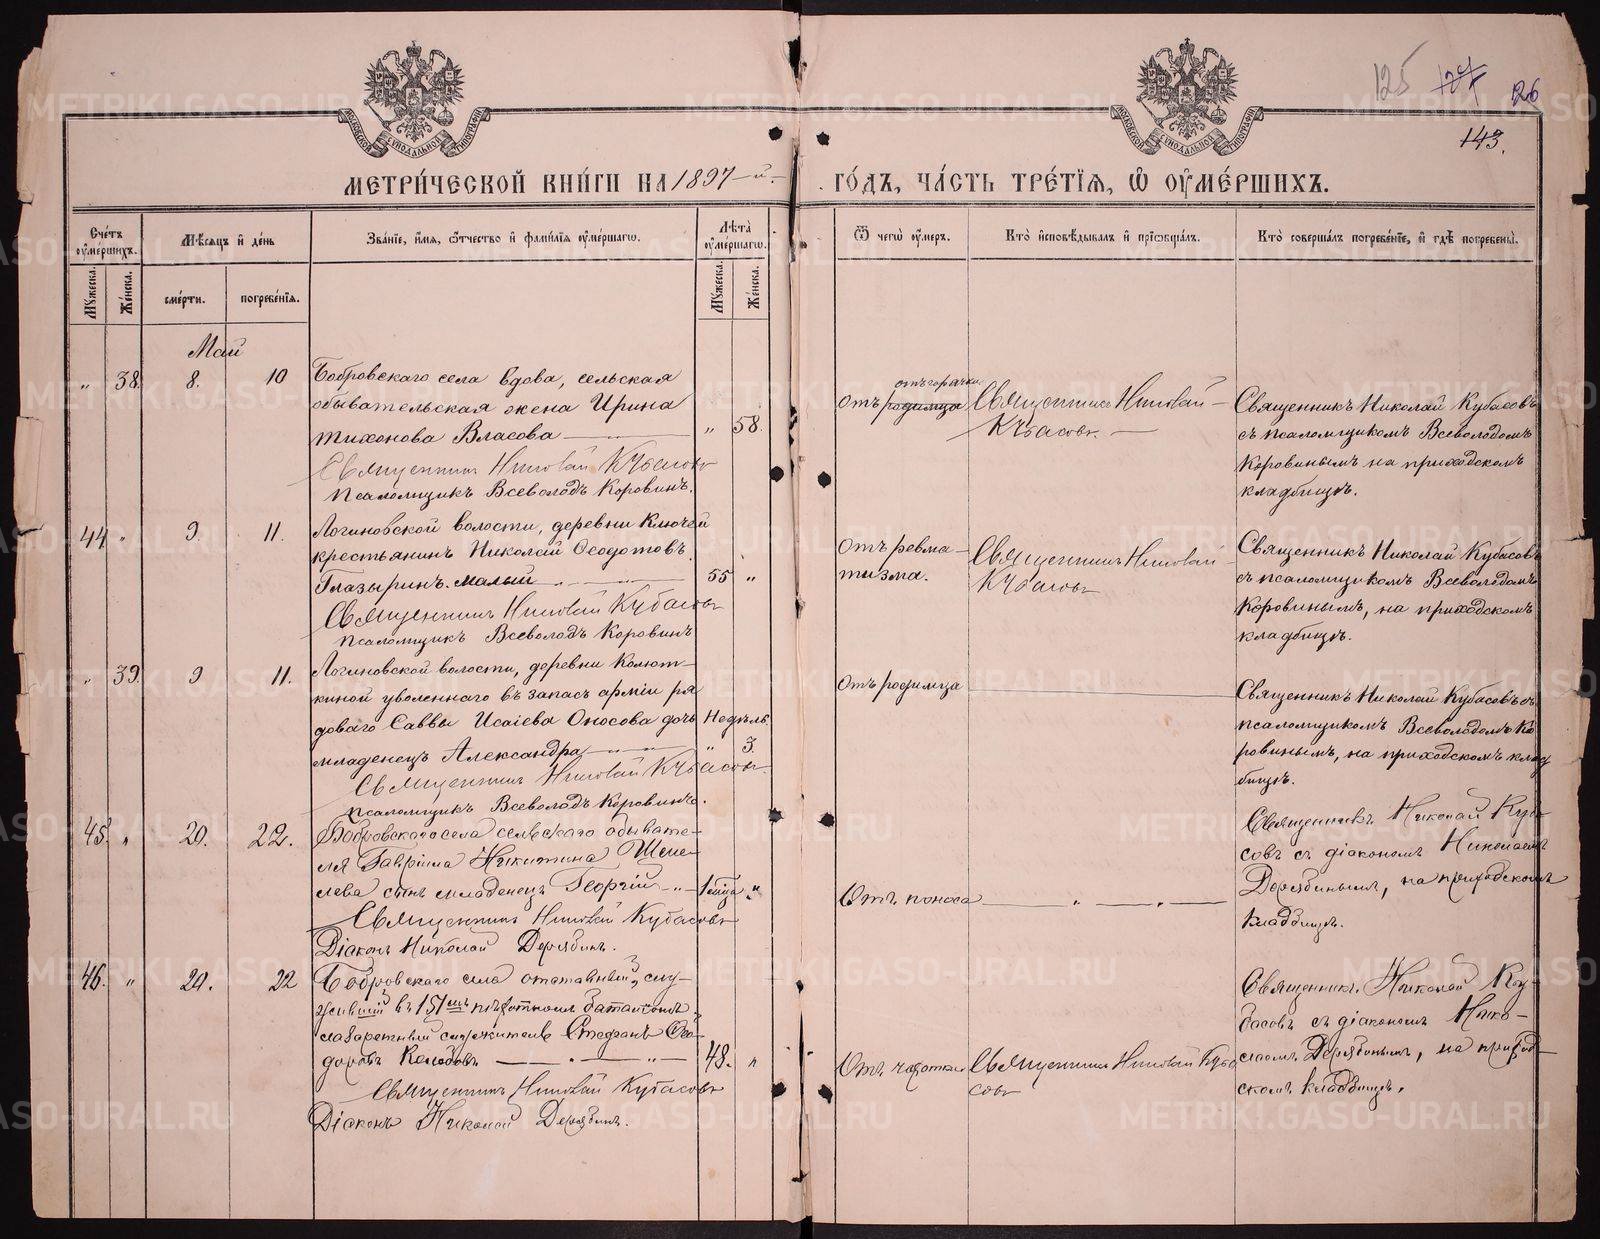 125 126
143.
МЕТРИ́ЧЕСКОЙ КНИ́ГИ НА 1897-й.
ГО́ДЪ, ЧА́СТЬ ТРЕ́ТІѦ, Ѿ ОУ҆МЕ́РШИХЪ.
Сче́тъ оу҆ме́ршихъ.
Мѣ́сѧцъ и҆ де́нь
Зва́ніе, и҆́мѧ, ѻ҆́тчество и҆ фами́лїѧ оу҆ме́ршагѡ.
Лѣ́та оу҆ме́ршагѡ.
Ѿ чегѡ̀ оу҆́меръ.
Кто̀ и҆сповѣ́дывалъ и҆ прїѡбща́лъ.
Кто̀ соверша́лъ погребе́нїе, и҆ гдѣ̀ погребены̀.
Мꙋ́жеска.
Же́нска.
сме́рти.
погребе́нїѧ.
Мꙋ́жеска.
Же́нска.
Май
" 38. 8. 10
Бобровскаго села вдова, сельская
обывательская жена Ирина
Тихонова Власова " 58.
Священникъ Николай Кубасовъ
Псаломщикъ Всеволодъ Коровинъ.
отъ горячки
отъ родимца
Священникъ Николай
Кубасовъ.
Священникъ Николай Кубасовъ
съ псаломщикомъ Всеволодомъ
Коровинымъ на приходскомъ
кладбищѣ.
44 " 9. 11.
Логиновской волости, деревни Ключей
крестьянинъ Николай Ѳеодотовъ
Глазыринъ. малый 55 "
Священникъ Николай Кубасовъ
Псаломщикъ Всеволодъ Коровинъ
отъ ревма-
тизма.
Священникъ Николай
Кубасовъ
Священникъ Николай Кубасовъ
съ псаломщикомъ Всеволодомъ
Коровинымъ, на приходскомъ
кладбищѣ.
" 39. 9 11.
Логиновской волости, деревни Колют-
киной уволеннаго въ запасъ арміи ря
доваго Саввы Исаіева Оносова дочь Недѣль
младенецъ Александра " 3.
Священникъ Николай Кубасовъ.
Псаломщикъ Всеволодъ Коровинъ.
отъ родимца
Священникъ Николай Кубасовъ съ
псаломщикомъ Всеволодомъ Ко
ровинымъ, на приходскомъ клад
бищѣ.
45. " 20. 22.
Бобровскаго села сельскаго обывате-
ля Гавріила Никитина Щеме-
лева сынъ младенецъ Георгій "
Священникъ Николай Кубасовъ
Діаконъ Николай Дерябинъ.
Отъ поноса
Священникъ Николай Куба
совъ съ діакономъ Николаемъ
Дерябинымъ, на приходскомъ
кладбищѣ.
46. " 20. 22
Бобровскаго села отставный, слу-
жившій въ 151мъ пѣхотномъ баталіонѣ
лазаретный служитель Стефанъ Ѳео-
доровъ Колобовъ 48. "
Священникъ Николай Кубасовъ
Діаконъ Николай Дерябинъ.
Отъ чахотки
Священникъ Николай Куба
совъ
Священникъ Николай Ку-
басовъ съ діакономъ Нико-
лаемъ Дерябинымъ, на приход-
скомъ кладбищѣ.